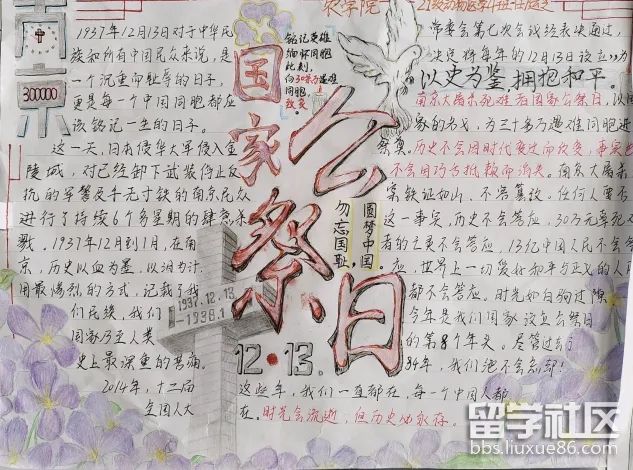 南京
300000
1937年12月13日对于中华民
族和所有中国民众来说，是
一个沉重而耻辱的日子，
更是每一个中国同胞都应
该铭记一生的日子。
这一天，日本侵华大军侵入金
陵城，对已经卸下武装停止反
抗的军警及手无寸铁的南京民众
进行了持续6个多星期的肆意杀
戮，1937年12月到1月，在南
京，历史以血为墨，以泪为汁，
用最惨烈的方式，记载了我
们民族、我们
国家乃至人类
史上最深重的苦痛。
2014年，十二届
全国人大
铭记英雄
缅怀同胞
此刻，
向30万遇难
同胞
致哀
国家公祭日
勿忘国耻，
圆梦中国。
1937.12.13.
-1938.1
12·13.
农学院
常委会第七次会议经表决通过，
决定将每年的12月13日设立为
以史为鉴 拥抱和平。
南京大屠杀死难者国家公祭日，以国
家的名义，为三十多万遇难同胞进行
祭奠。历史不会因时代变迁而改变，事实也
不会因巧舌抵赖而消失。南京大屠杀
案铁证如山，不容篡改。任何人要否
这一事实，历史不会答应，30万无辜死
者的亡灵不会答应，13亿中国人民不会答
应，世界上一切爱好和平与正义的人
都不会答应。时光如白驹过隙
今年是我们国家设立公祭日
的第8个年头。尽管过去了
84年，我们绝不会忘却！
这些年，我们一直都在，每一个中国人都
在。时光会流逝，但历史必永存。
留学社区
bbs.liuxue86.com